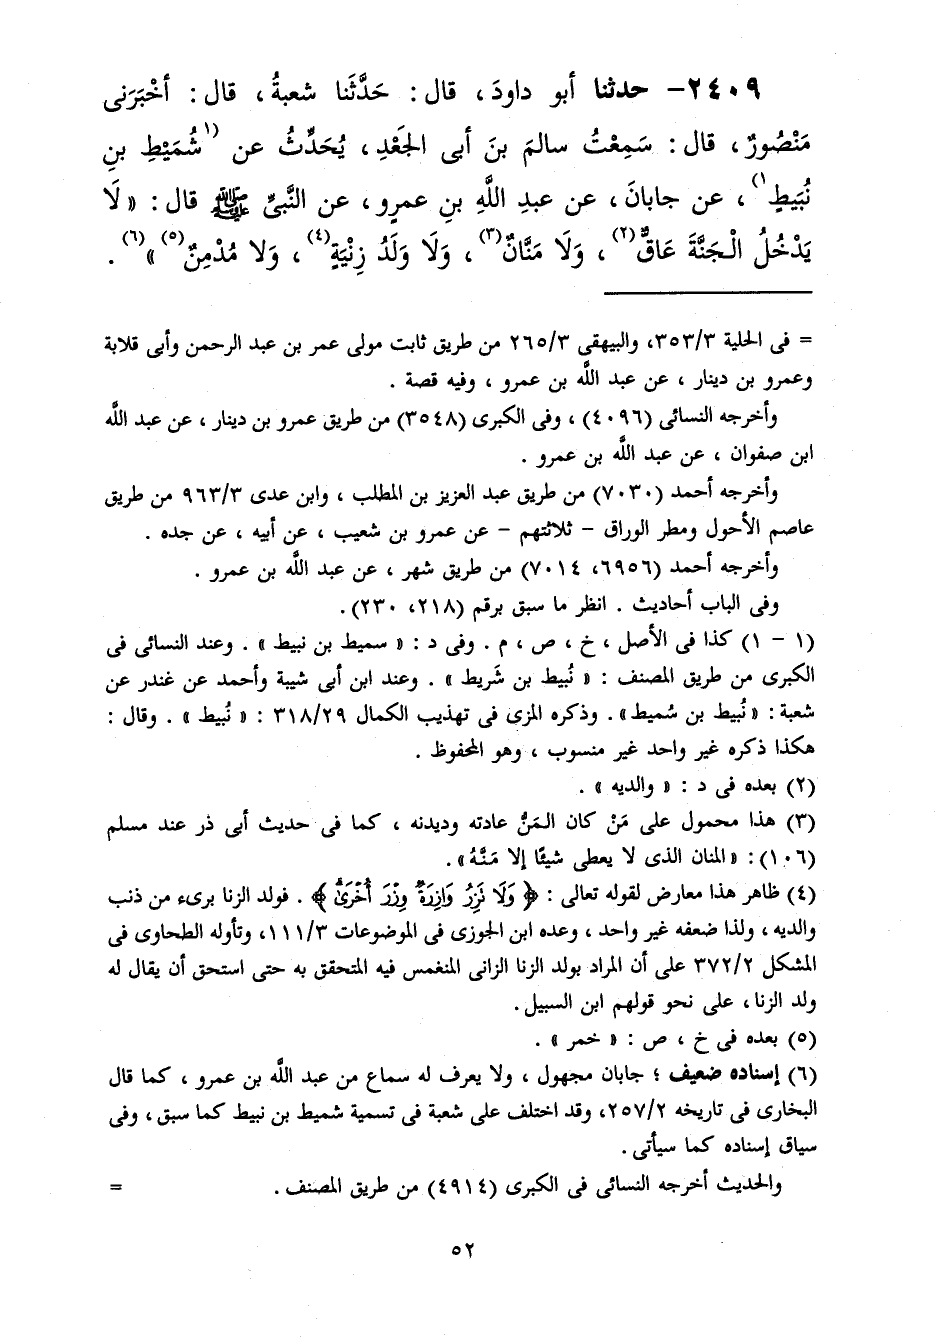 ٢٤٠٩- حدثنا أبو داودَ، قال: حَدَّثَنا شعبةُ، قال: أخْبَرَنى
مَنْصُورٌ، قال: سَمِعْتُ سالمَ بنَ أبى الجَعْدِ، يُحَدِّثُ عن (١شُمَيْطِ بنِ
نُبَيَطٍ١)، عن جابانَ، عن عبدِ اللَّهِ بنِ عمرٍو، عن النَّبىِّ ﷺ قال: «لَا
يَدْخُلُ الْجَنَّةَ عَاقٌّ(٢)، وَلَا مَنَّانٌ(٣)، وَلَا وَلَدُ زِنْيَةٍ(٤)، وَلا مُدْمِنٌ(٥)»(٦).
= فى الحلية ٣٥٣/٣، والبيهقى ٢٦٥/٣ من طريق ثابت مولى عمر بن عبد الرحمن وأبى قلابة
وعمرو بن دينار، عن عبد اللَّه بن عمرو، وفيه قصة.
وأخرجه النسائى (٤٠٩٦)، وفى الكبرى (٣٥٤٨) من طريق عمرو بن دينار، عن عبد اللَّه
ابن صفوان، عن عبد اللَّه بن عمرو.
وأخرجه أحمد (٧٠٣٠) من طريق عبد العزيز بن المطلب، وابن عدى ٩٦٣/٣ من طريق
عاصم الأحول ومطر الوراق - ثلاثتهم - عن عمرو بن شعيب، عن أبيه، عن جده.
وأخرجه أحمد (٦٩٥٦، ٧٠١٤) من طريق شهر، عن عبد اللَّه بن عمرو.
وفى الباب أحاديث. انظر ما سبق برقم (٢١٨، ٢٣٠).
(١ - ١) كذا فى الأصل، خ، ص، م. وفى د: «سميط بن نبيط». وعند النسائى فى
الكبرى من طريق المصنف: «نُبيط بن شَريط». وعند ابن أبى شيبة وأحمد عن غندر عن
شعبة: «نُبيط بن سُميط». وذكره المزى فى تهذيب الكمال ٣١٨/٢٩: «نُبيط». وقال:
هكذا ذكره غير واحد غير منسوب، وهو المحفوظ.
(٢) بعده فى د: «والديه».
(٣) هذا محمول على مَنْ كان المَنُّ عادته وديدنه، كما فى حديث أبى ذر عند مسلم
(١٠٦): «المنان الذى لا يعطى شيئًا إلا مَنَّهُ».
(٤) ظاهر هذا معارض لقوله تعالى: ﴿وَلَا نَزِرُ وَازِرَةٌ وِزْرَ أُخْرَىٰ﴾. فولد الزنا برىء من ذنب
والديه، ولذا ضعفه غير واحد، وعده ابن الجوزى فى الموضوعات ١١١/٣، وتأوله الطحاوى فى
المشكل ٣٧٢/٢ على أن المراد بولد الزنا الزانى المنغمس فيه المتحقق به حتى استحق أن يقال له
ولد الزنا، على نحو قولهم ابن السبيل.
(٥) بعده فى خ، ص: «خمر».
(٦) إسناده ضعيف؛ جابان مجهول، ولا يعرف له سماع من عبد اللَّه بن عمرو، كما قال
البخارى فى تاريخه ٢٥٧/٢، وقد اختلف على شعبة فى تسمية شميط بن نبيط كما سبق، وفى
سياق إسناده كما سيأتى.
والحديث أخرجه النسائى فى الكبرى (٤٩١٤) من طريق المصنف. =
٥٢